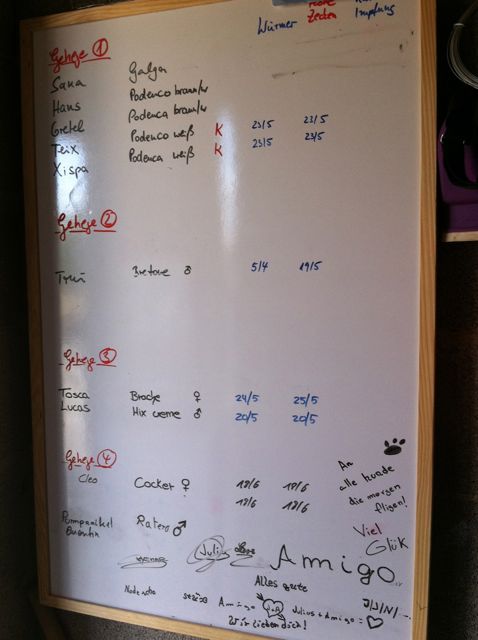 Würmer Zecken Impfung
Gehege 1
Sana Galga
Hans Podenco braun/w
Gretel Podenca braun/w
Teix Podenco weiß K 23/5 23/5
Xispa Podenca weiß K 23/5 23/5
Gehege 2
Truí Bretone ♂ 5/4 19/5
Gehege 3
Tosca Bracke ♀ 24/5 25/5
Lucas Mix creme ♂ 20/5 20/5
Gehege 4
Cleo Cocker ♀ 18/6 18/6
18/6 18/6
Quentin Ratero ♂
An
alle hunde
die morgen
fligen!
Viel
Glük
Julius
Amigo..
Alles gute
Amigo J+A Julius + Amigo = ♡
Wir lieben dich!